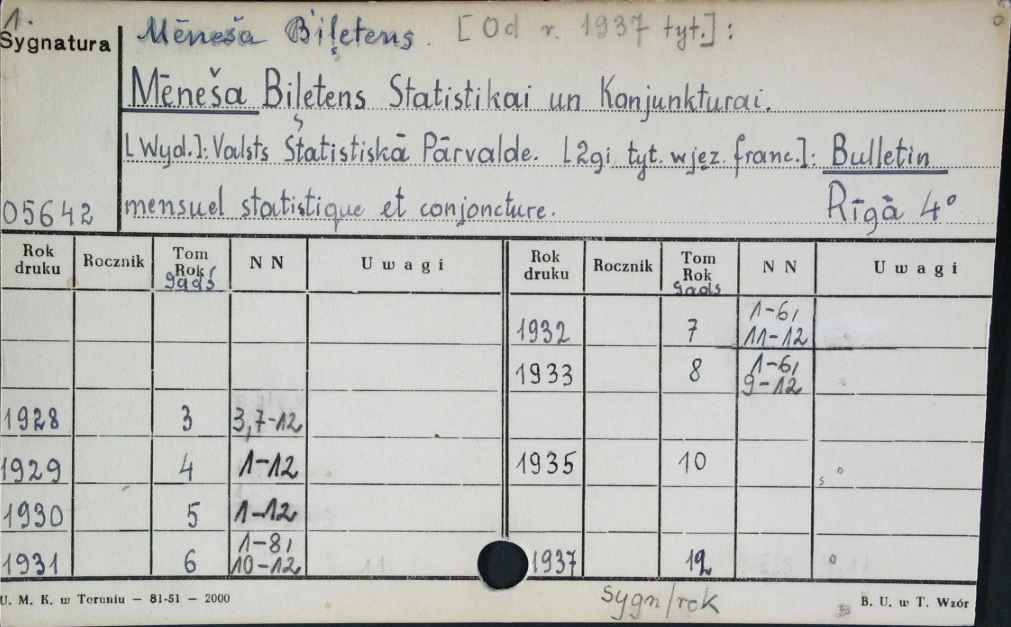 1.
Sygnatura
Mēneša Biļetens. [Od r. 1937 tyt.]:
Mēneša Biļetens Statistikai un Konjunkturai.
[Wyd.]: Valsts Statistiskā Pārvalde. [2gi tyt. w jęz. franc.]: Bulletin
05642 mensuel statistique et conjoncture. Rīgā 4°
Rok druku Rocznik Tom Rok/gads NN Uwagi Rok druku Rocznik Tom Rok gads NN Uwagi
1932 7 1-6, 11-12
1933 8 1-6, 9-12
1928 3 3,7-12
1929 4 1-12 1935 10
1930 5 1-12
1931 6 1-8, 10-12 1937 12
U. M. K. w Toruniu — 81-51 — 2000 sygn/rek B. U. w T. Wzór